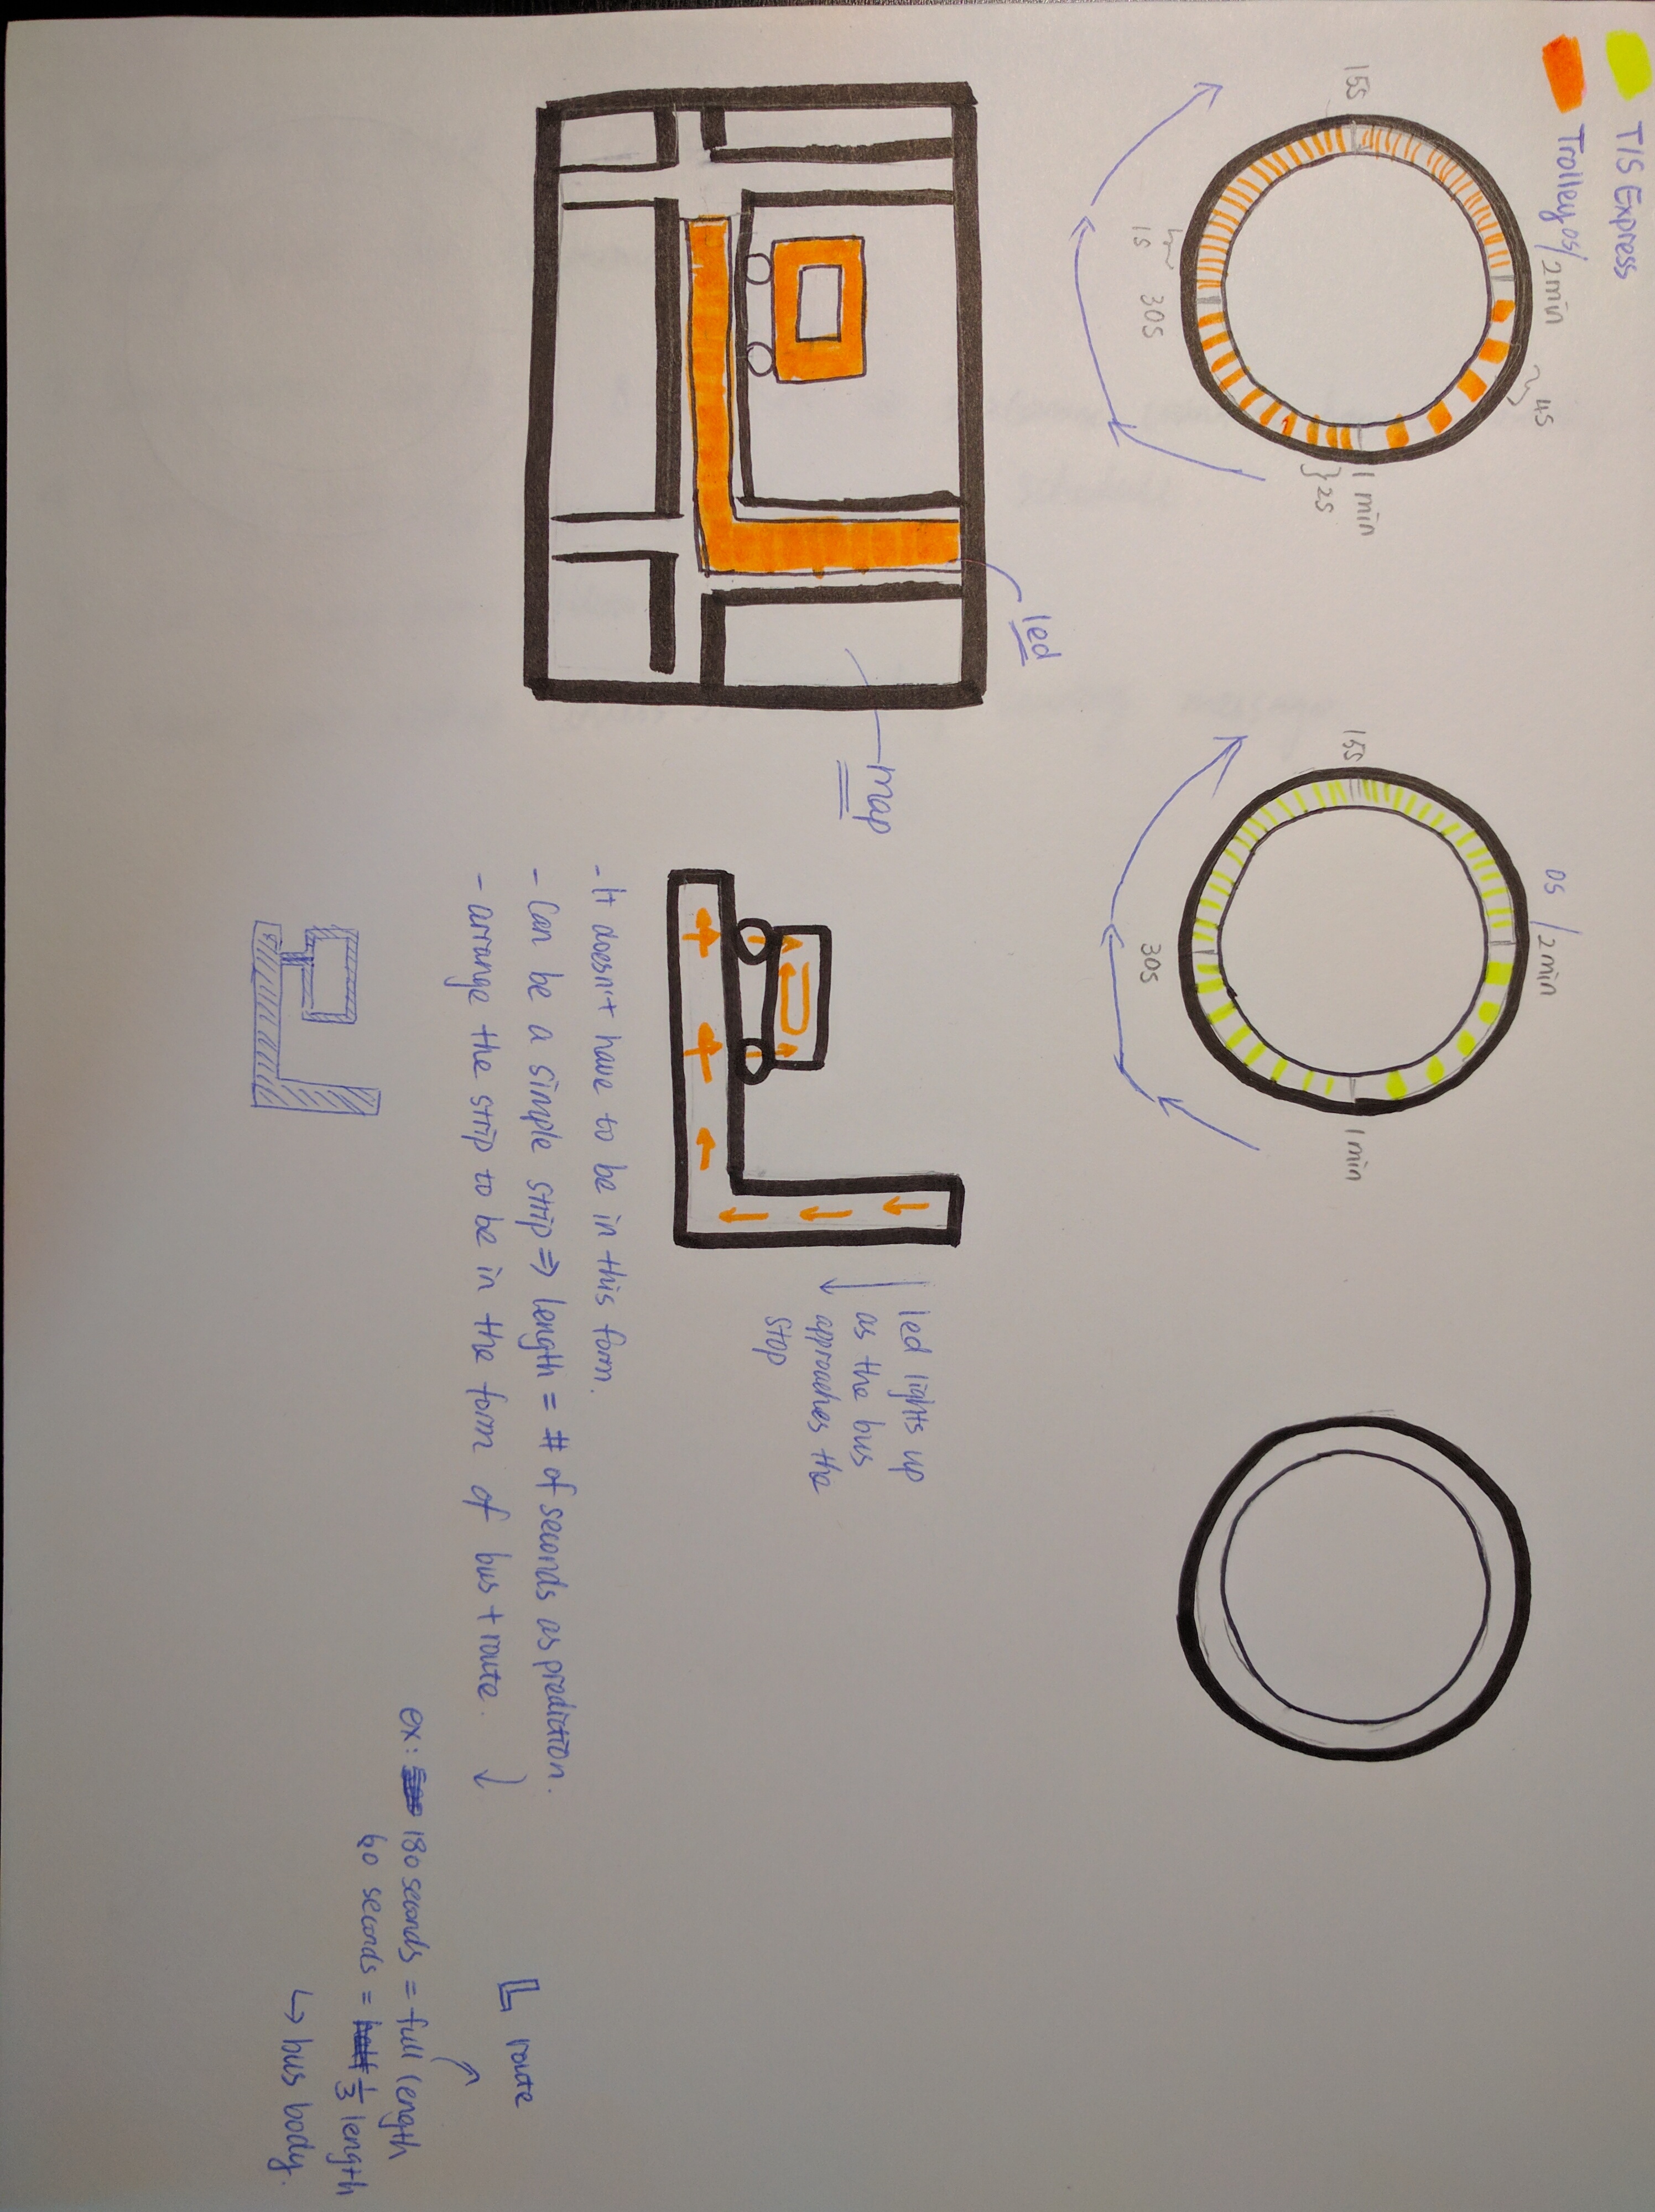 TIS Express
Trolley
0s/2min
4s
1 min
}2s
30s
1s
15s
0s/2min
1 min
30s
15s
led
map
led lights up
as the bus
approaches the
stop
- It doesn't have to be in this form.
- Can be a simple strip ⇒ length = # of seconds as prediction.
- arrange the strip to be in the form of bus + route. ↓
route
ex: 180 seconds = full length
60 seconds = 1/3 length
↳ bus body.